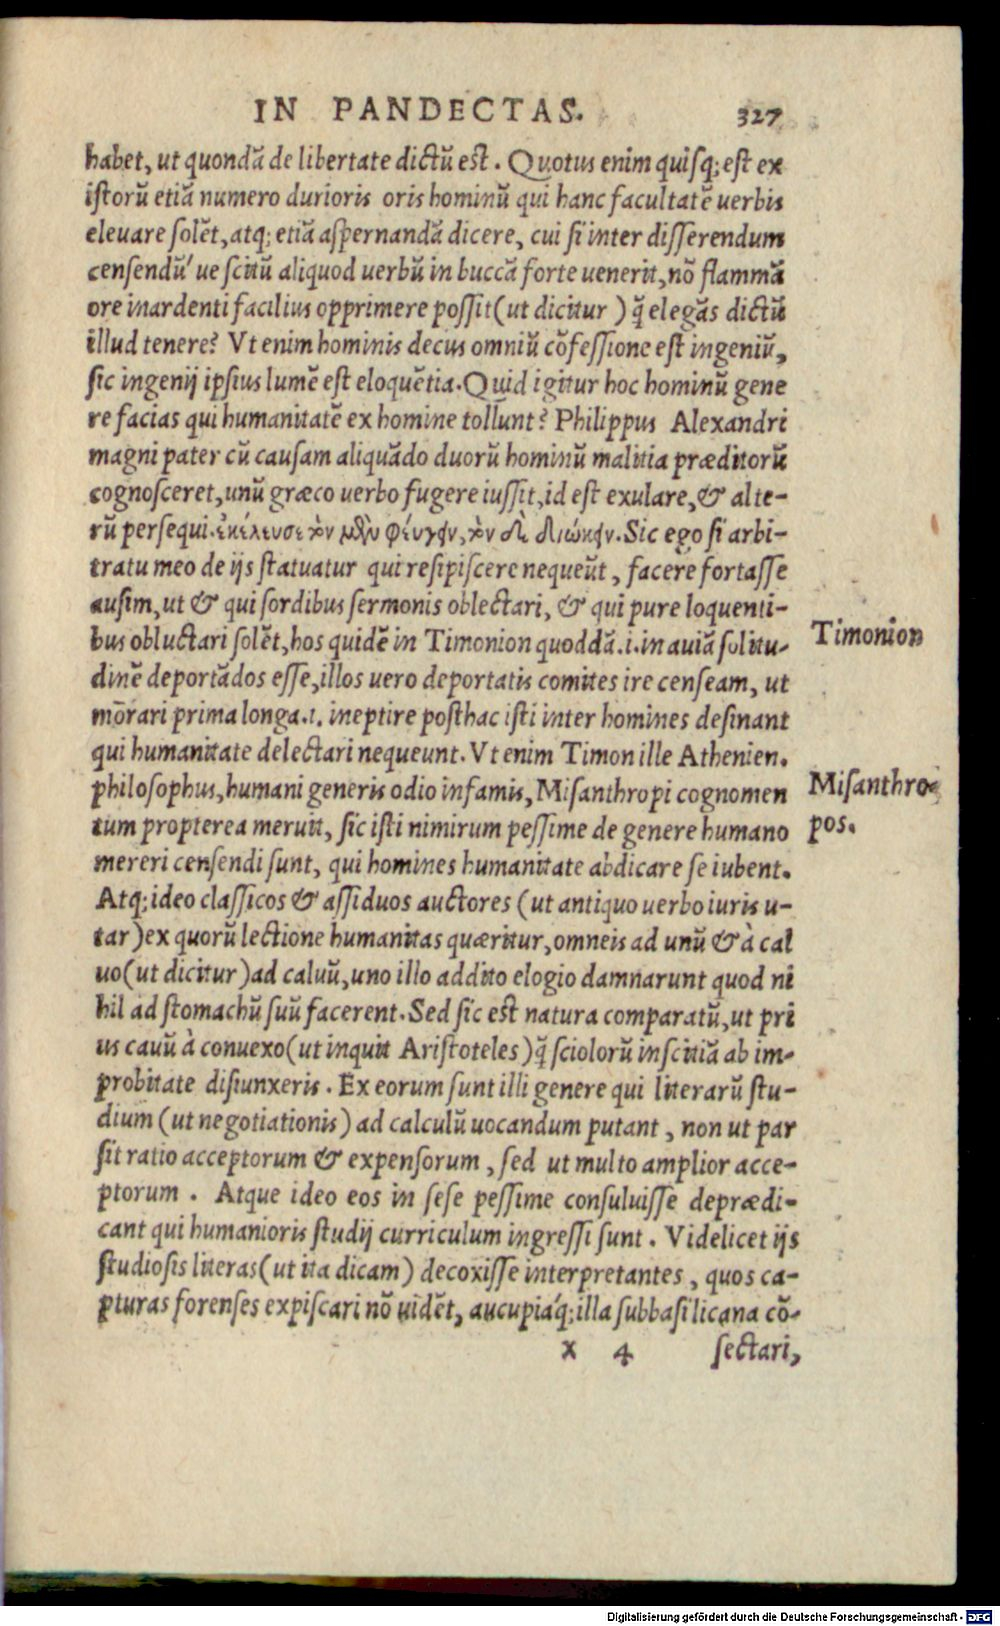 IN PANDECTAS. 327
habet, ut quondā de libertate dictū est. Quotus enim quisq; est ex
istorū etiā numero durioris oris hominū qui hanc facultatē uerbis
eleuare solēt, atq; etiā aspernandā dicere, cui si inter disserendum
censendū´ue scitū aliquod uerbū in buccā forte uenerit, nō flammā
ore in ardenti facilius opprimere possit (ut dicitur) q̄ elegās dictū
illud tenere? Vt enim hominis decus omniū cōfessione est ingeniū,
sic ingenij ipsius lumē est eloquētia. Quid igitur hoc hominū gene
re facias qui humanitatē ex homine tollunt? Philippus Alexandri
magni pater cū causam aliquādo duorū hominū malitia præditorū
cognosceret, unū græco uerbo fugere iussit, id est exulare, & alte-
rū persequi. ἐκέλευσε τὸν μὲν φεύγειν, τὸν δὲ διώκειν. Sic ego si arbi-
tratu meo de ijs statuatur qui resipiscere nequeūt, facere fortasse
ausim, ut & qui sordibus sermonis oblectari, & qui pure loquenti-
bus obluctari solēt, hos quidē in Timonion quoddā .i. in auiā solitu-
Timonion
dinē deportādos esse, illos uero deportatis comites ire censeam, ut
mōrari prima longa .i. ineptire posthac isti inter homines desinant
qui humanitate delectari nequeunt. Vt enim Timon ille Athenien.
philosophus, humani generis odio infamis, Misanthropi cognomen
Misanthro-
tum propterea meruit, sic isti nimirum pessime de genere humano
pos.
mereri censendi sunt, qui homines humanitate abdicare se iubent.
Atq; ideo classicos & assiduos auctores (ut antiquo uerbo iuris u-
tar) ex quorū lectione humanitas quæritur, omneis ad unū & à cal
uo (ut dicitur) ad caluū, uno illo addito elogio damnarunt quod ni
hil ad stomachū suū facerent. Sed sic est natura comparatū, ut pri
us cauū à conuexo (ut inquit Aristoteles) q̄ sciolorū inscitiā ab im-
probitate disiunxeris. Ex eorum sunt illi genere qui literarū stu-
dium (ut negotiationis) ad calculū uocandum putant, non ut par
sit ratio acceptorum & expensorum, sed ut multo amplior acce-
ptorum. Atque ideo eos in sese pessime consuluisse deprædi-
cant qui humanioris studij curriculum ingressi sunt. Videlicet ijs
studiosis literas (ut ita dicam) decoxisse interpretantes, quos ca-
pturas forenses expiscari nō uidēt, aucupiáq; illa subbasilicana cō-
x 4 sectari,
Digitalisierung gefördert durch die Deutsche Forschungsgemeinschaft - DFG